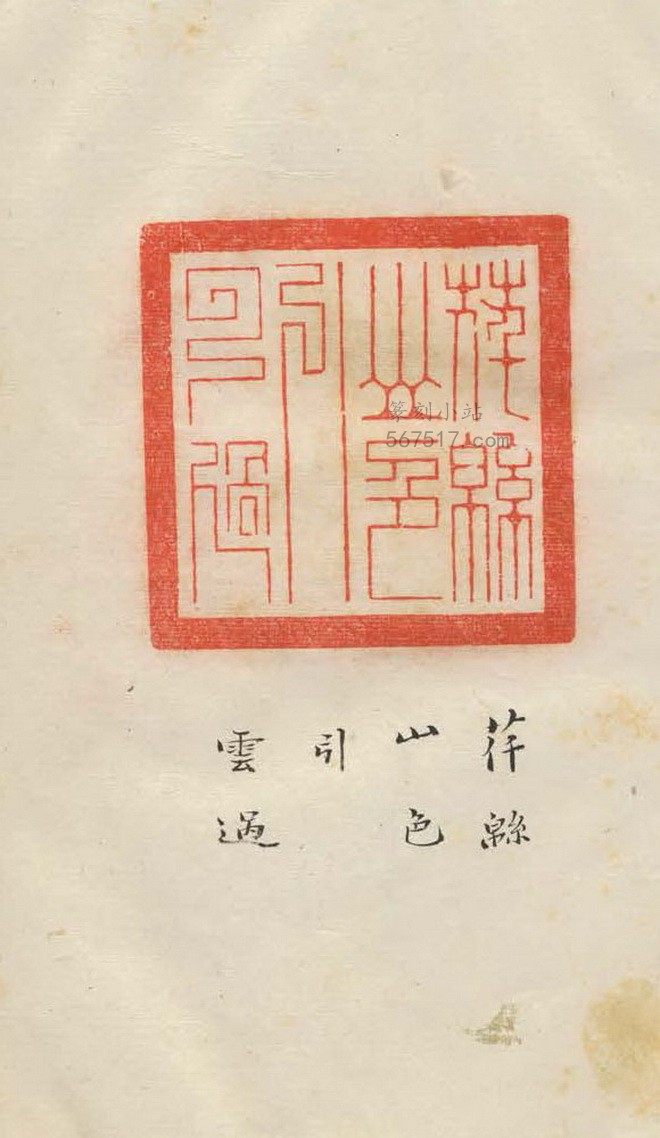 芊緜
山色
引
雲過
篆刻小站
567517.com
芊緜
山色
引
雲過